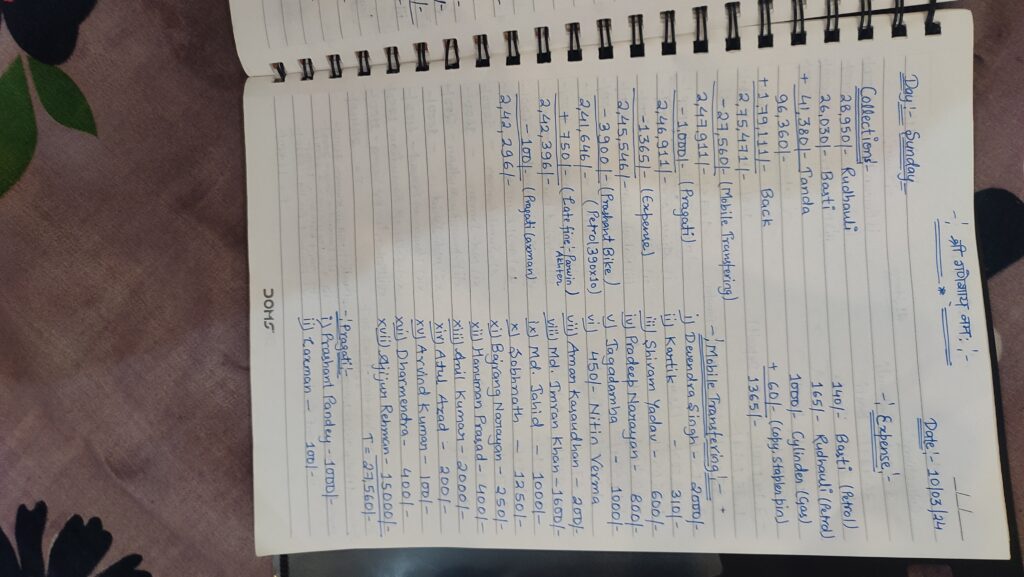 -: श्री गणेशाय नमः :-
Day:- Sunday
Date:- 10/03/24
Collections-
28,950/- Rudhauli
26,030/- Basti
+ 41,380/- Tanda
96,360/-
+ 1,79,111/- Back
2,75,471/-
-27,560/- (Mobile Transtering)
2,47,911/-
-1,000/- (Pragati)
2,46,911/-
-1365/- (Expense)
2,45,546/-
-3900/- (Prashant Bike)
2,41,646/- (Petrol (390x10)
+ 750/- (Late fine:- Parwin Akhter)
2,42,396/-
-100/- (Pragati Laxman)
2,42,296/-
-: Expense:-
140/- Basti (Petrol)
165/- Rudhauli (Petrol)
1000/- Cylinder (Gas)
+ 60/- (Copy, Stapler pin)
1365/-
-: Mobile Transtering:-
i) Devendra Singh - 2000/-
ii) Kartik - 310/-
iii) Shivam Yadav - 600/-
iv) Pradeep Narayan - 800/-
v) Jagadamba - 1000/-
vi) 450/- Nitin Verma
vii) Aman Kasaudhan - 200/-
viii) Md. Imran Khan - 1600/-
ix) Md. Jahid - 1000/-
x) Sobhnath - 1250/-
xi) Bajrang Narayan - 250/-
xii) Hanuman Prasad - 400/-
xiii) Anil Kumar - 2000/-
xiv) Atul Azad - 200/-
xv) Arvind Kumar - 100/-
xvi) Dharmendra - 400/-
xvii) Ajijur Rehman - 15000/-
T = 27,560/-
-: Pragati:-
i) Prashant Pandey - 1000/-
ii) Laxman - 100/-
DOMS